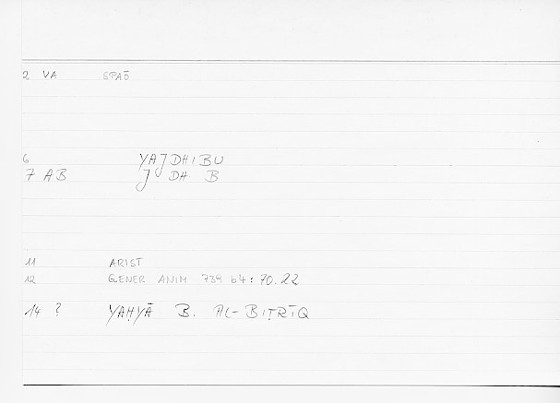 2 VA SPAŌ
6 YAJDHIBU
7 AB J DH B
11 ARIST
12 GENER ANIM 739 b4 : 70.22
14 ? YAḤYĀ B. AL-BIṬRĪQ